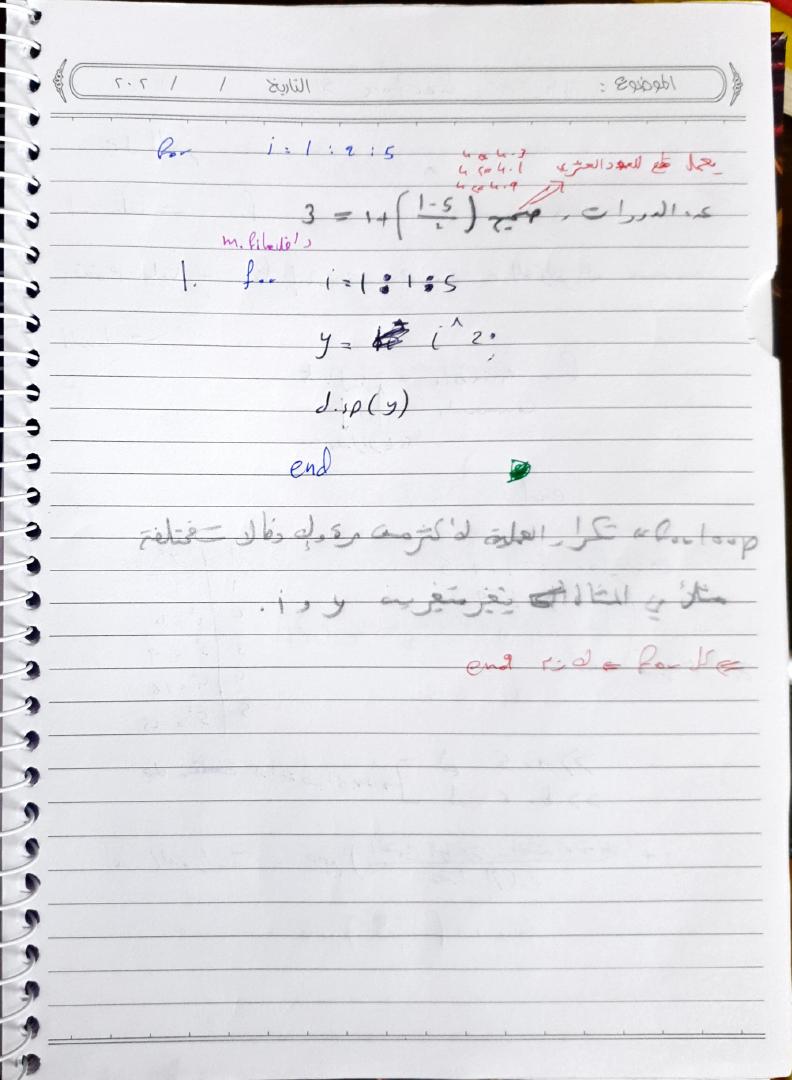 الموضوع : التاريخ / / ٢٠٢
for i = 1 : 2 : 5
يعمل قطع للعدد العشري
4 ⇐ 4.3
4 ⇐ 4.1
4 ⇐ 4.9
عدد الدورات = صحيح (1-5/2) +1 = 3
m. file
1. for i = 1 : 1 : 5
y = i ^ 2;
disp(y)
end
for loop ⇐ تكرار العملية لأكثر من مرة ولـ مختلفة
مثلاً في المثال يتغير متغيرين y و i .
⇐ كل for ⇐ لازم end